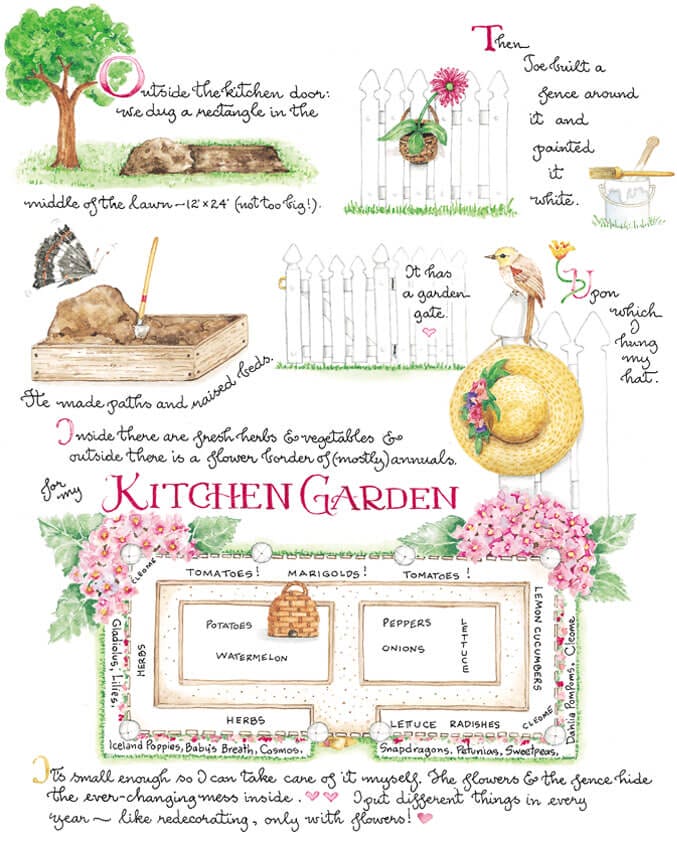 Outside the kitchen door:
we dug a rectangle in the
middle of the lawn—12'x24' (not too big!).
Then
Joe built a
fence around
it and
painted
it
white.
He made paths and raised beds.
It has
a garden
gate.
Upon
which
I
hung
my
hat.
Inside there are fresh herbs & vegetables &
outside there is a flower border of (mostly) annuals.
for my KITCHEN GARDEN
CLEOME
TOMATOES! MARIGOLDS! TOMATOES!
Gladiolus, Lilies,
HERBS
POTATOES
WATERMELON
PEPPERS
ONIONS
LETTUCE
LEMON CUCUMBERS
Dahlia PomPoms, Cleome
HERBS
LETTUCE RADISHES
CLEOME
Iceland Poppies, Baby's Breath, Cosmos,
Snapdragons, Petunias, Sweetpeas,
It's small enough so I can take care of it myself. The flowers & the fence hide
the ever-changing mess inside. I put different things in every
year ~ like redecorating, only with flowers!